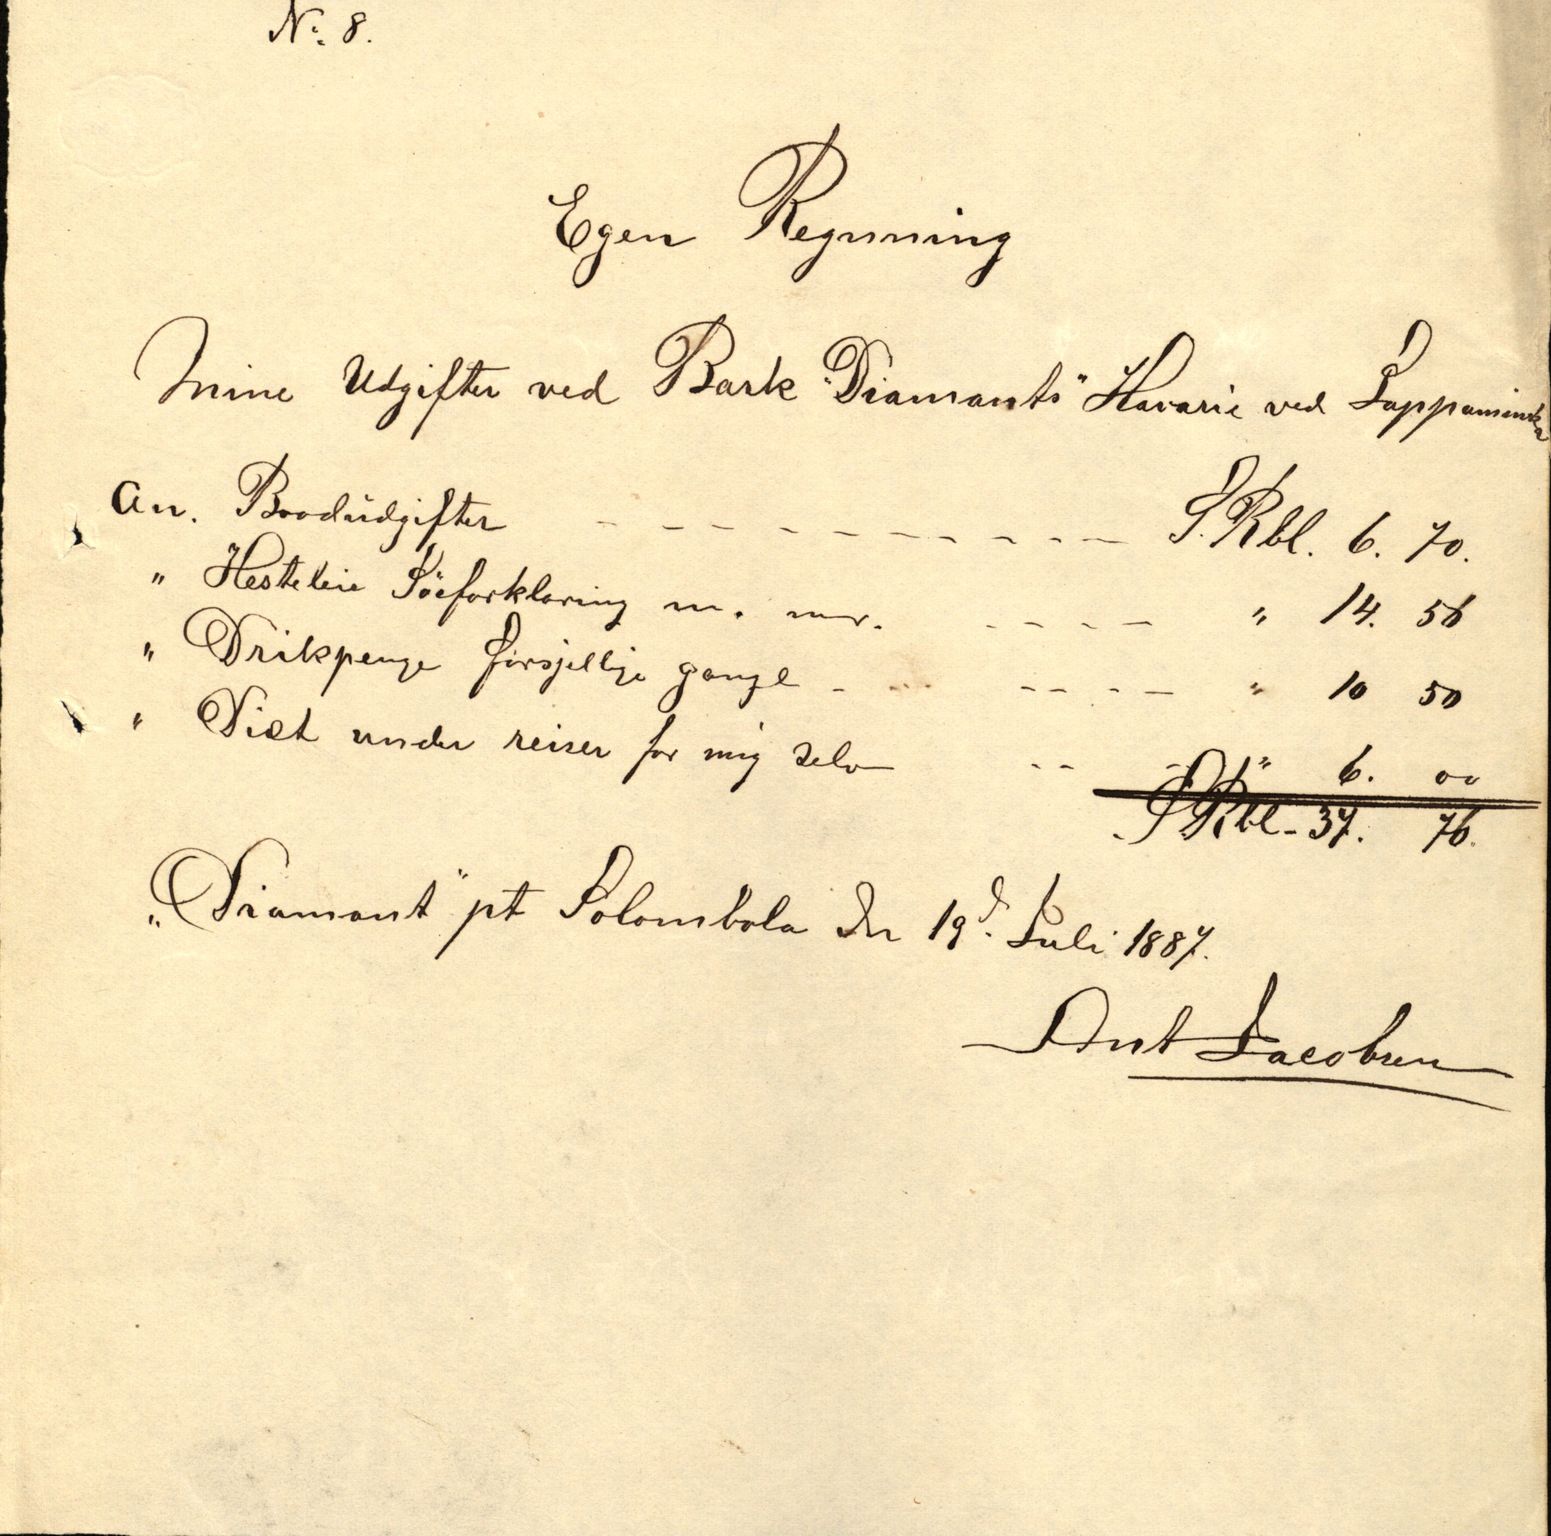 No. 8.
Egen Regnning
Mine Udgifter ved Bark "Diamants" Havarie ved Lappaminska
An. Baadudgifter - - - - - - - - - S. Rbl. 6. 70.
" Hesteleie Söeforklaring m. m. - - - - " 14. 56
" Drikpenge forsjellige gange - - - - - - " 10 50
" Diæt under reiser for mig selv - - - " 6. 00
S. Rbl - 37. 76.
"Diamant" pt Solombola den 19d. Juli 1887.
Ant Jacobsen